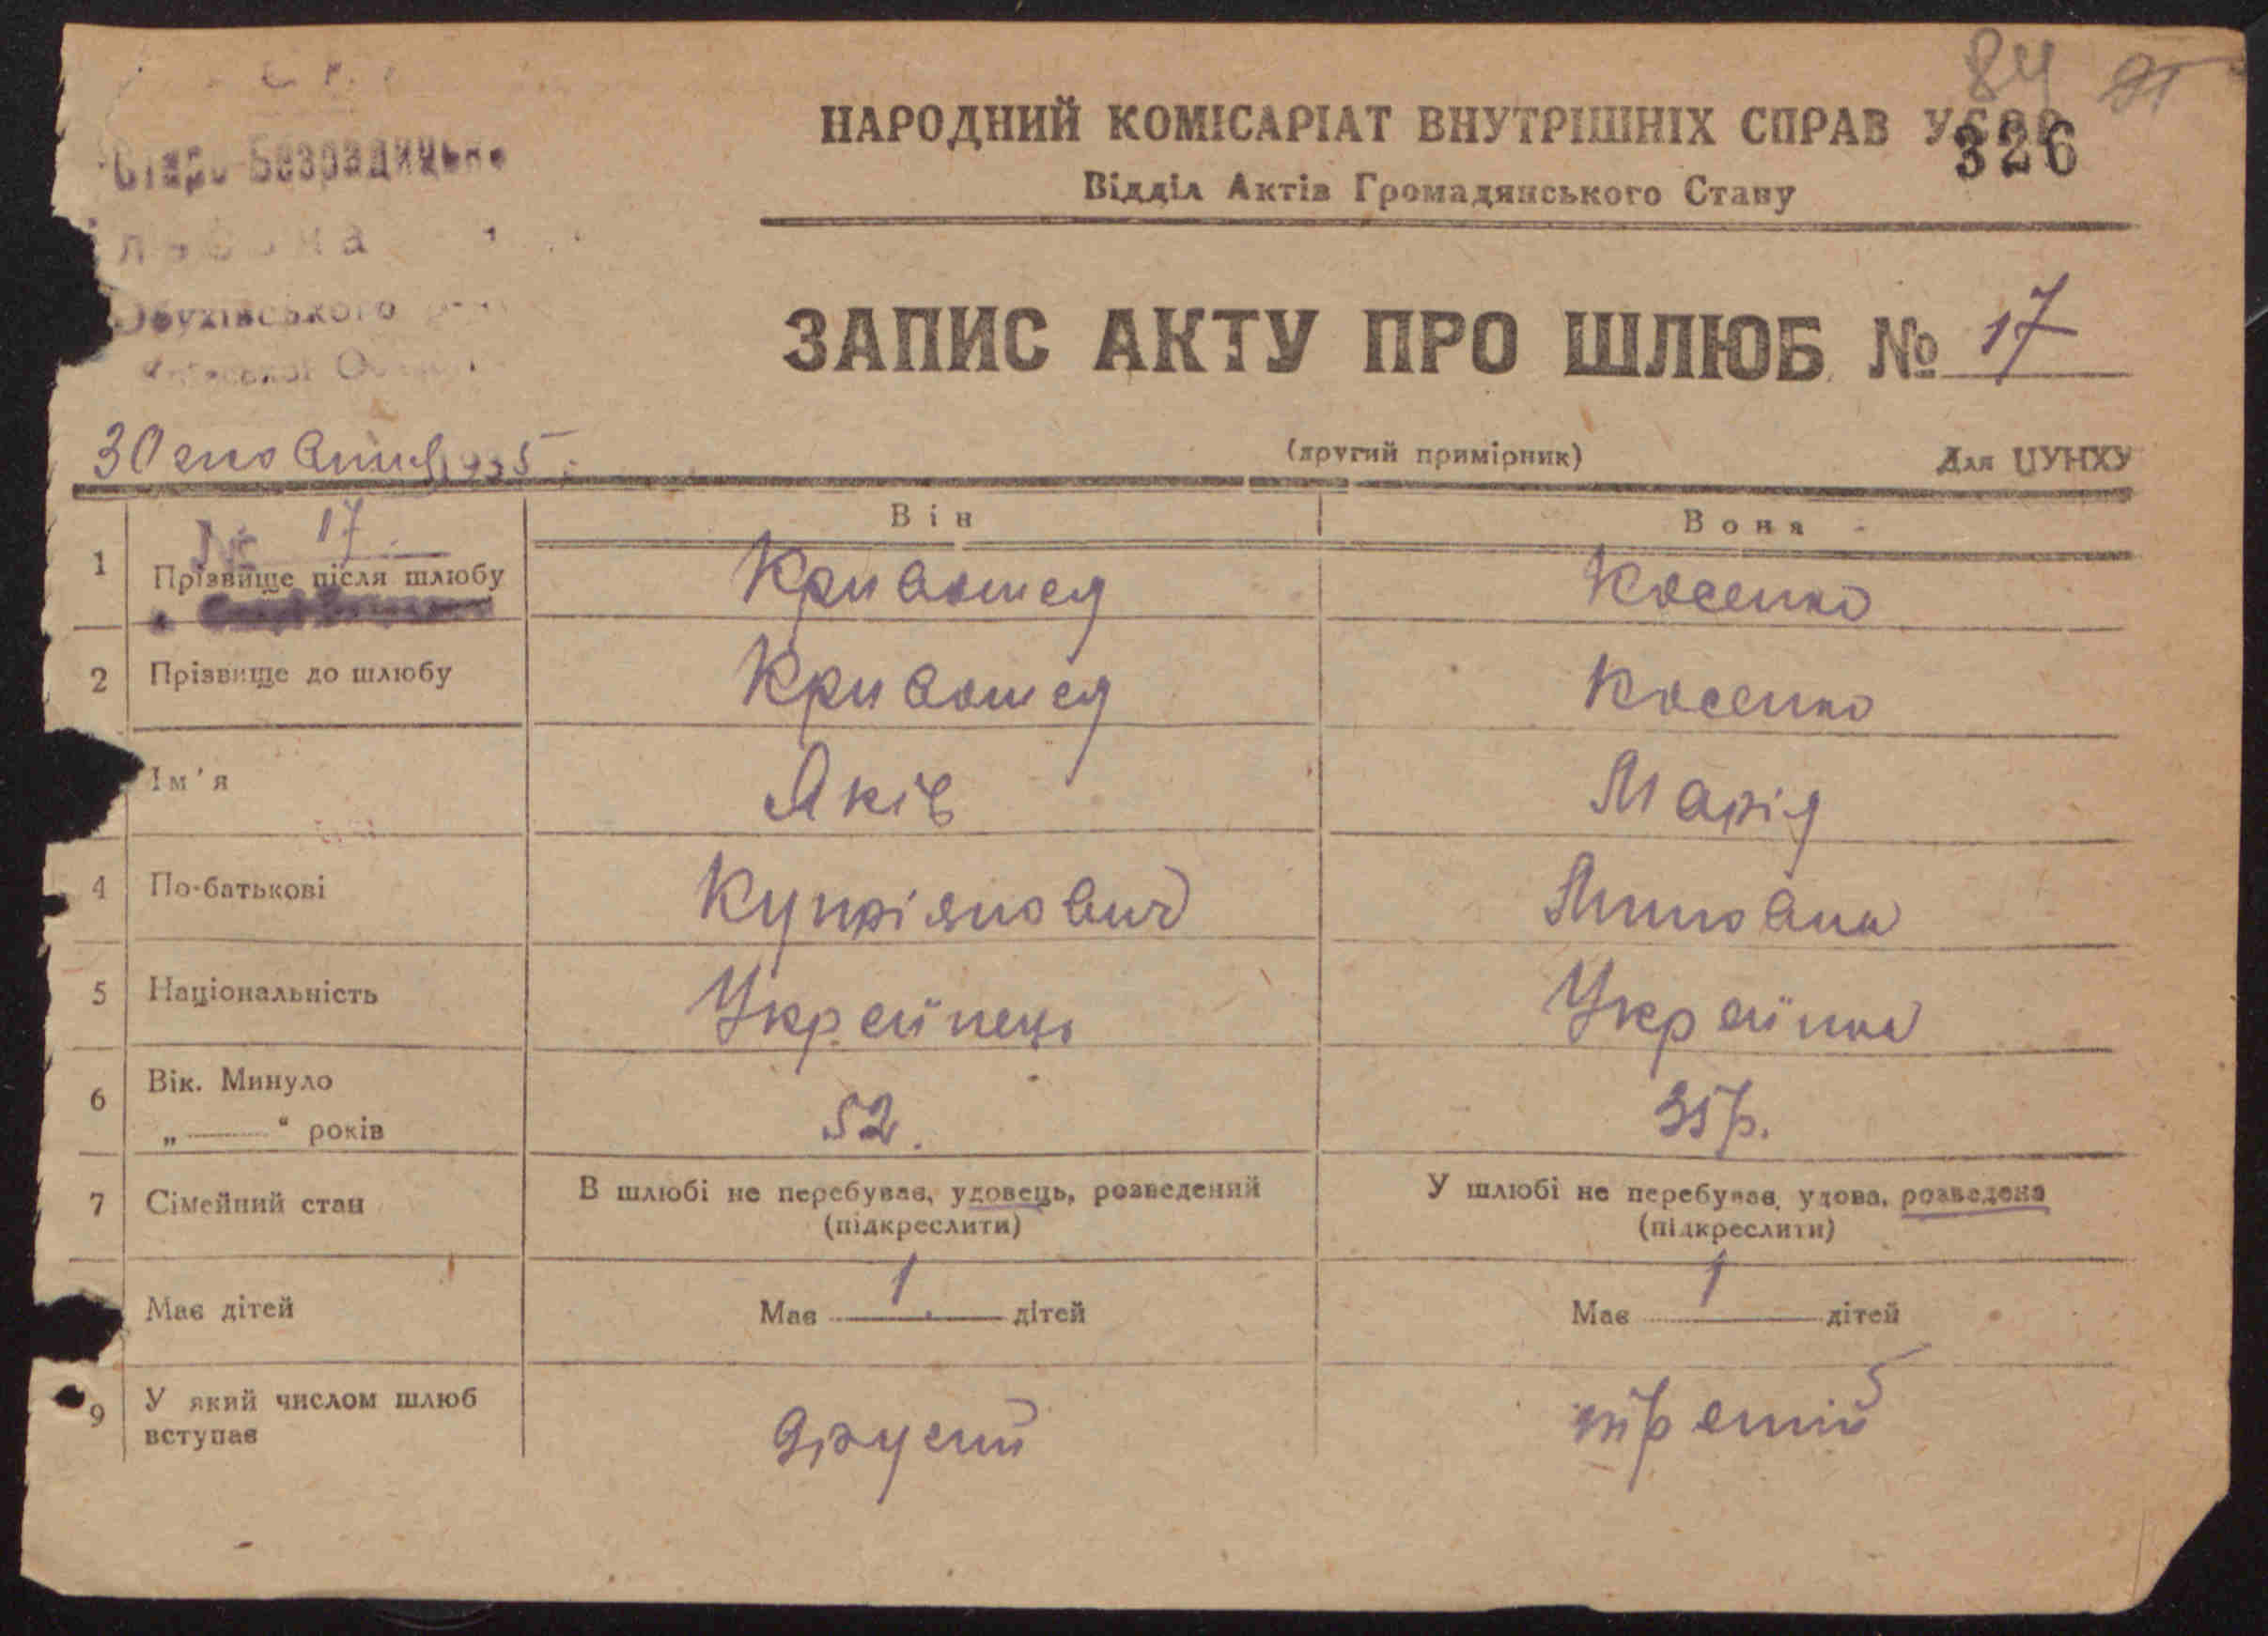 84
326
Старо-Безрадицька
НАРОДНИЙ КОМІСАРІАТ ВНУТРІШНІХ СПРАВ УСРР
Відділ Актів Громадянського Стану
Обухівського
ЗАПИС АКТУ ПРО ШЛЮБ № 17
30 1935
(другий примірник) Для ЦУНХУ
Він Вона
№ 17
1 Прізвище після шлюбу Кривошея Косенко
2 Прізвище до шлюбу Кривошея Косенко
Ім'я Яків Марія
4 По-батькові Купріянович
5 Національність Українець Українка
6 Вік. Минуло
„ “ років 52. 35 р.
7 Сімейний стан В шлюбі не перебував, удовець, розведений У шлюбі не перебував, удова, розведена
(підкреслити) (підкреслити)
Має дітей Має 1 дітей Має 1 дітей
9 У який числом шлюб
вступає другий третій